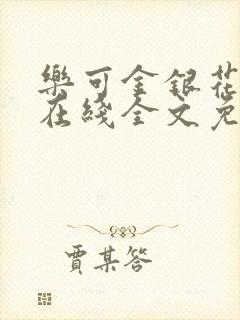 樂可金銀花
在綫全文免
賈某答